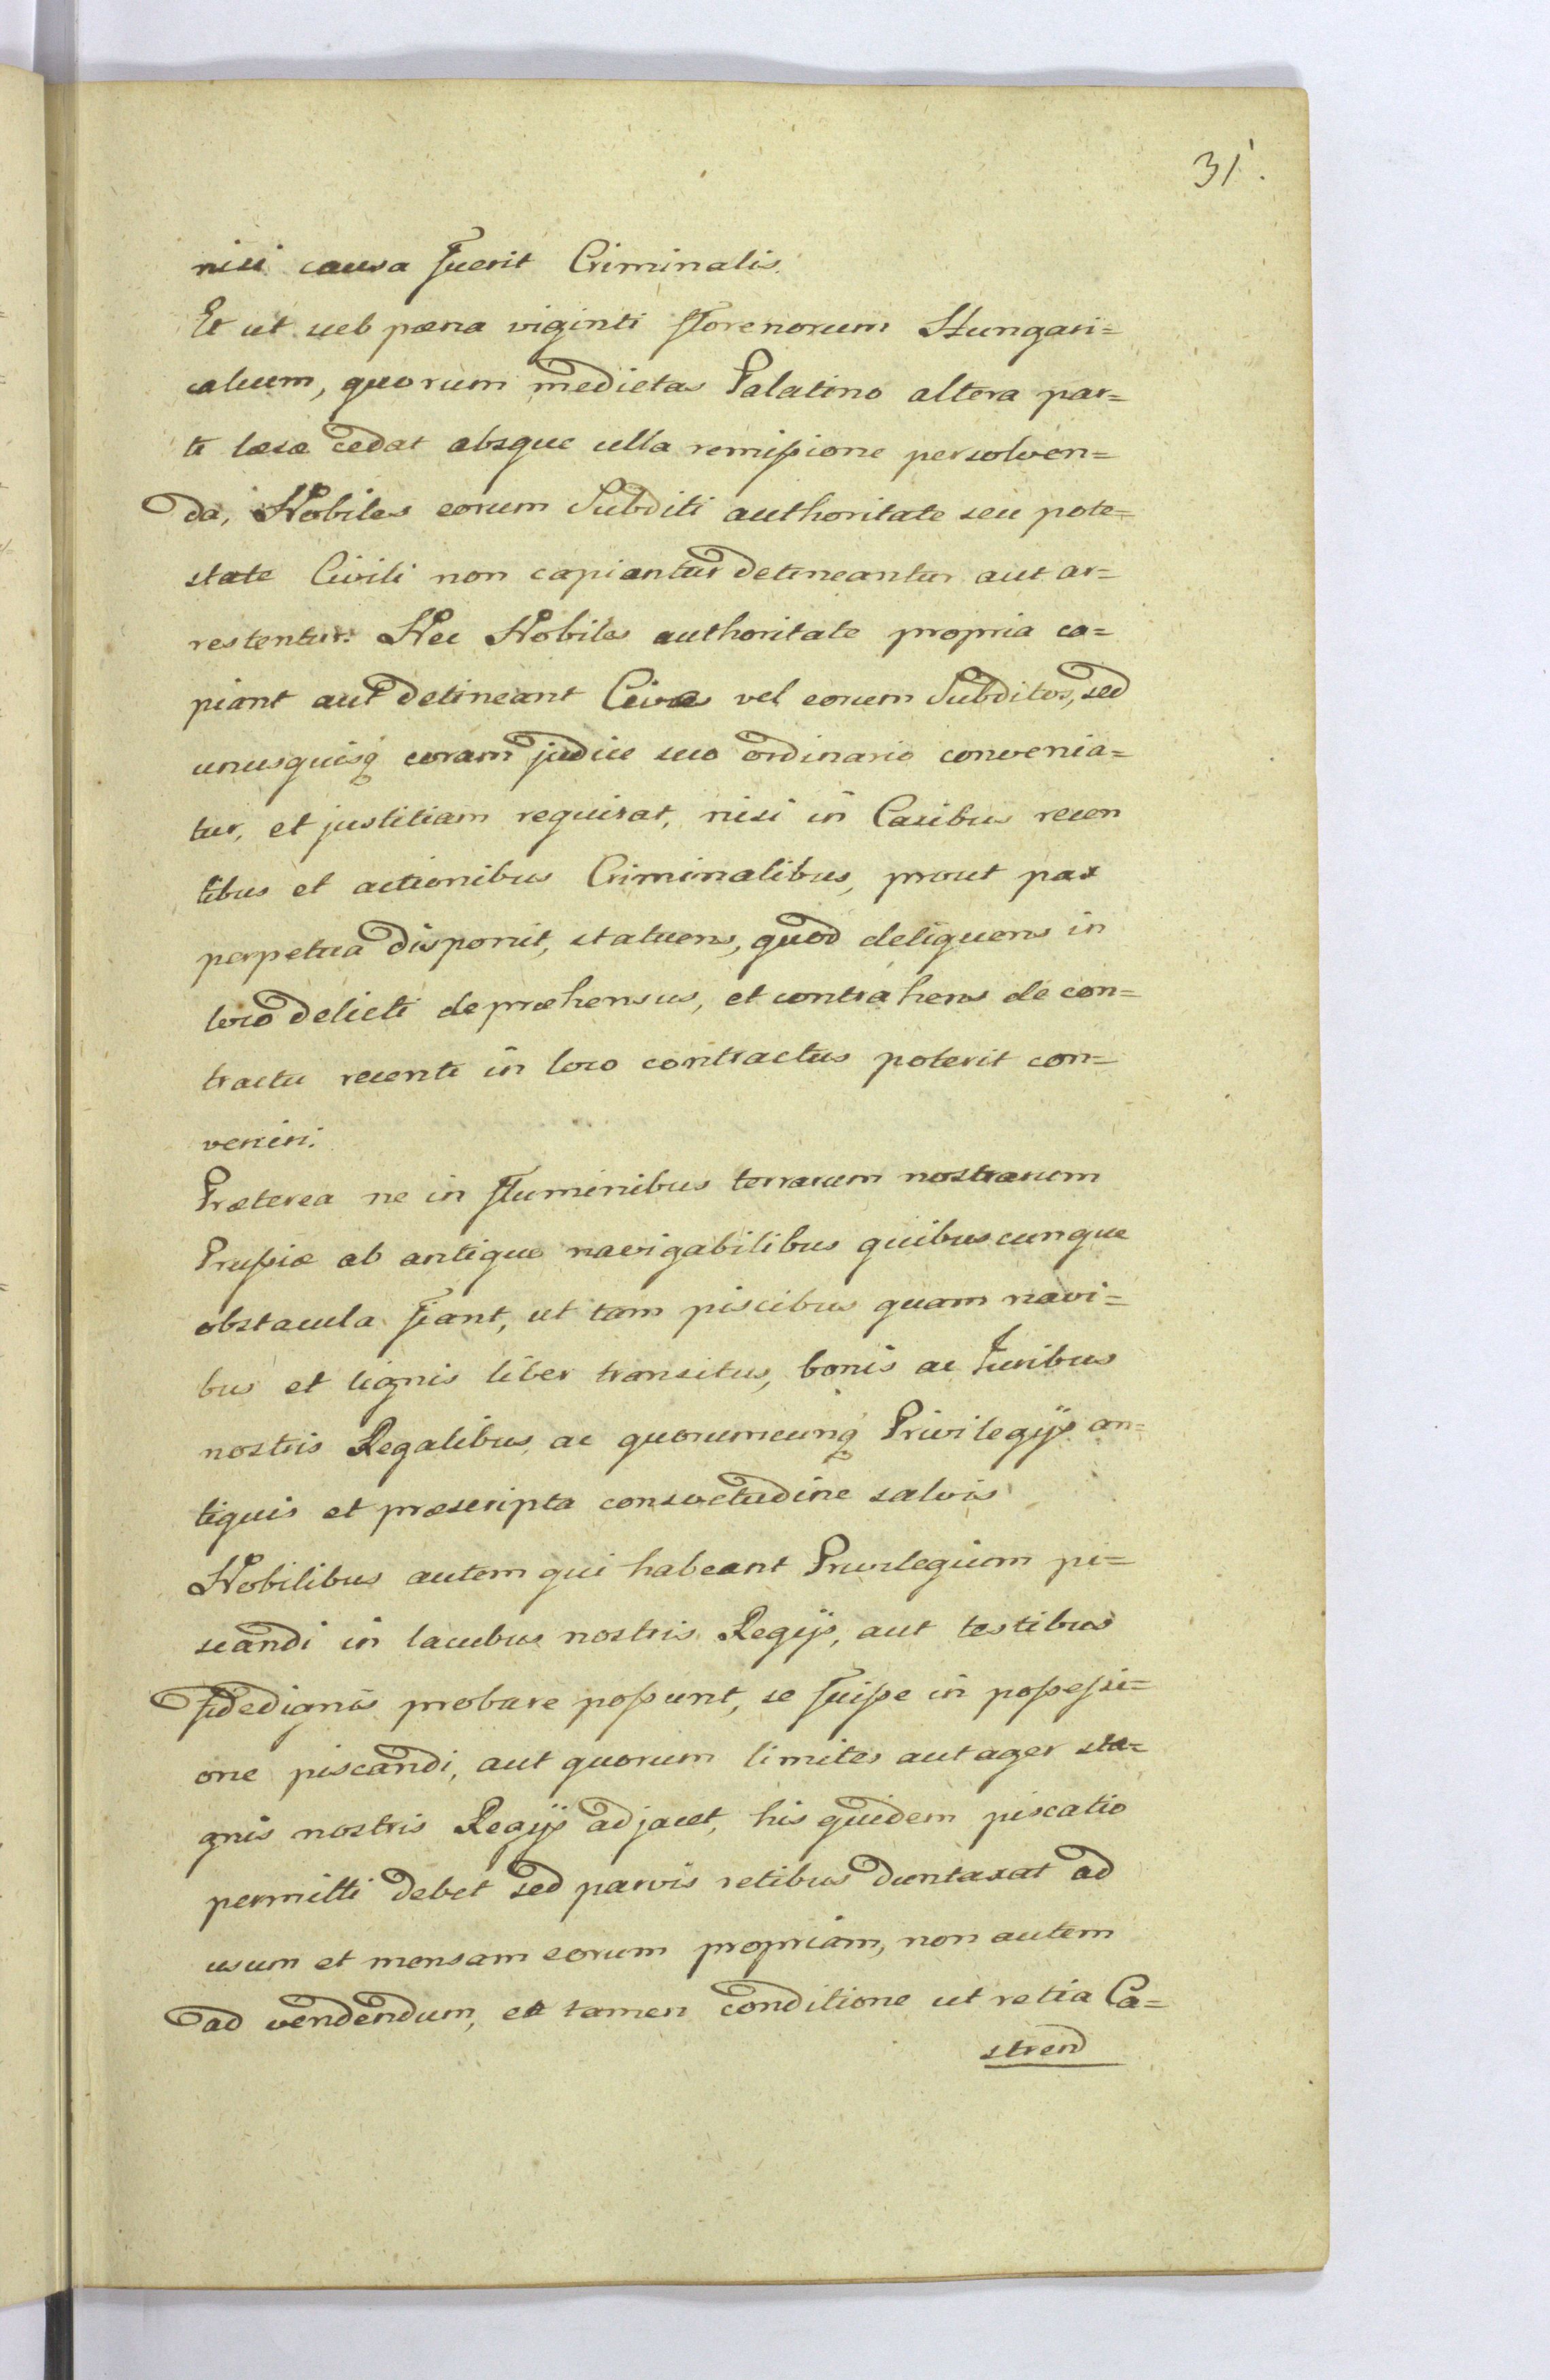 31.
nisi causa fuerit Criminalis.
Et ut sub pæna viginti florenorum Hungari=
calium, quorum medietas Palatino altera par=
ti læsæ cedat absque ulla remißione persolven=
da, Nobiles eorum Subditi authoritate seu pote=
state Civili non capiantur detineantur aut ar=
restentur. Nec Nobiles authoritate propria ca=
piant aut detineant Cives vel eorum Subditos, sed
unusquisq coram judice suo ordinario convenia=
tur, et justitiam requirat, nisi in Casibus recen
tibus et actionibus Criminalibus, prout pax
perpetua disponit, statuens, quod deliquens in
loco delicti depræhensus, et contrahens de con=
tractu recenti in loco contractus poterit con=
veniri.
Præterea ne in fluminibus terrarum nostrarum
Prußiæ ab antiquo navigabilibus quibuscunque
obstacula fiant, ut tam piscibus quam navi=
bus et lignis liber transitus, bonis ac Juribus
nostris Regalibus, ac quorumcunq Privilegijs an=
tiquis et præscripta consvetudine salvis
Nobilibus autem qui habeant Privilegium pi=
scandi in lacubus nostris Regijs, aut testibus
fidedignis probare poßunt, se fuiße in poßeßi=
one piscandi, aut quorum limites aut ager sta=
gnis nostris Regijs adjacet, his quidem piscatio
permitti debet sed parvis retibus duntaxat ad
usum et mensam eorum propriam, non autem
ad vendendum, ea tamen conditione ut retia Ca=
strend